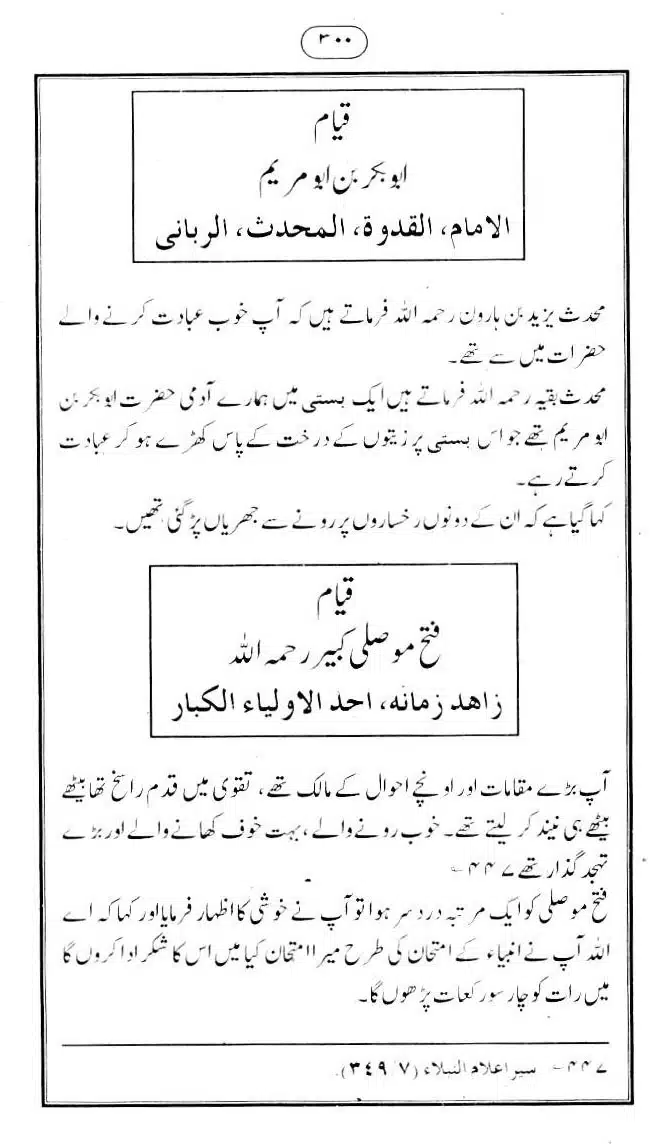 ۳۰۰
قیام
ابو بکر بن ابو مریم
الامام، القدوة، المحدث، الربانی
محدث یزید بن ہارون رحمہ اللہ فرماتے ہیں کہ آپ خوب عبادت کرنے والے
حضرات میں سے تھے۔
محدث بقیہ رحمہ اللہ فرماتے ہیں ایک بستی میں ہمارے آدمی حضرت ابو بکر بن
ابو مریم تھے جو اس بستی پر زیتوں کے درخت کے پاس کھڑے ہو کر عبادت
کرتے رہے۔
کہا گیا ہے کہ ان کے دونوں رخساروں پر رونے سے جھریاں پڑ گئی تھیں۔
قیام
فتح موصلی کبیر رحمہ اللہ
زاهد زمانه، احد الاولیاء الکبار
آپ بڑے مقامات اور اونچے احوال کے مالک تھے، تقوی میں قدم راسخ تھا بیٹھے
بیٹھے ہی نیند کر لیتے تھے۔ خوب رونے والے، بہت خوف کھانے والے اور بڑے
تہجد گذار تھے ۴۴۷۔
فتح موصلی کو ایک مرتبہ درد سر ہوا تو آپ نے خوشی کا اظہار فرمایا اور کہا کہ اے
اللہ آپ نے انبیاء کے امتحان کی طرح میرا امتحان کیا میں اس کا شکر ادا کروں گا
میں رات کو چار سو رکعات پڑھوں گا۔
۴۴۷۔ سیر اعلام النبلاء (۷/ ۳۴۹).